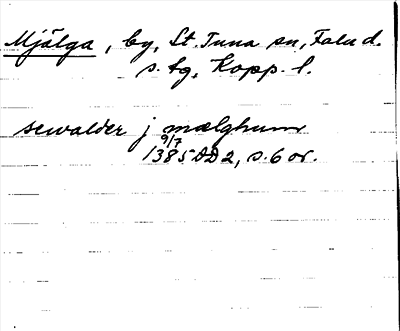 Mjälga, by, St. Tuna sn, Falu d.
s. tg, Kopp. l.
sewalder j mælghum
9/7
1385 DD 2, s. 6 or.